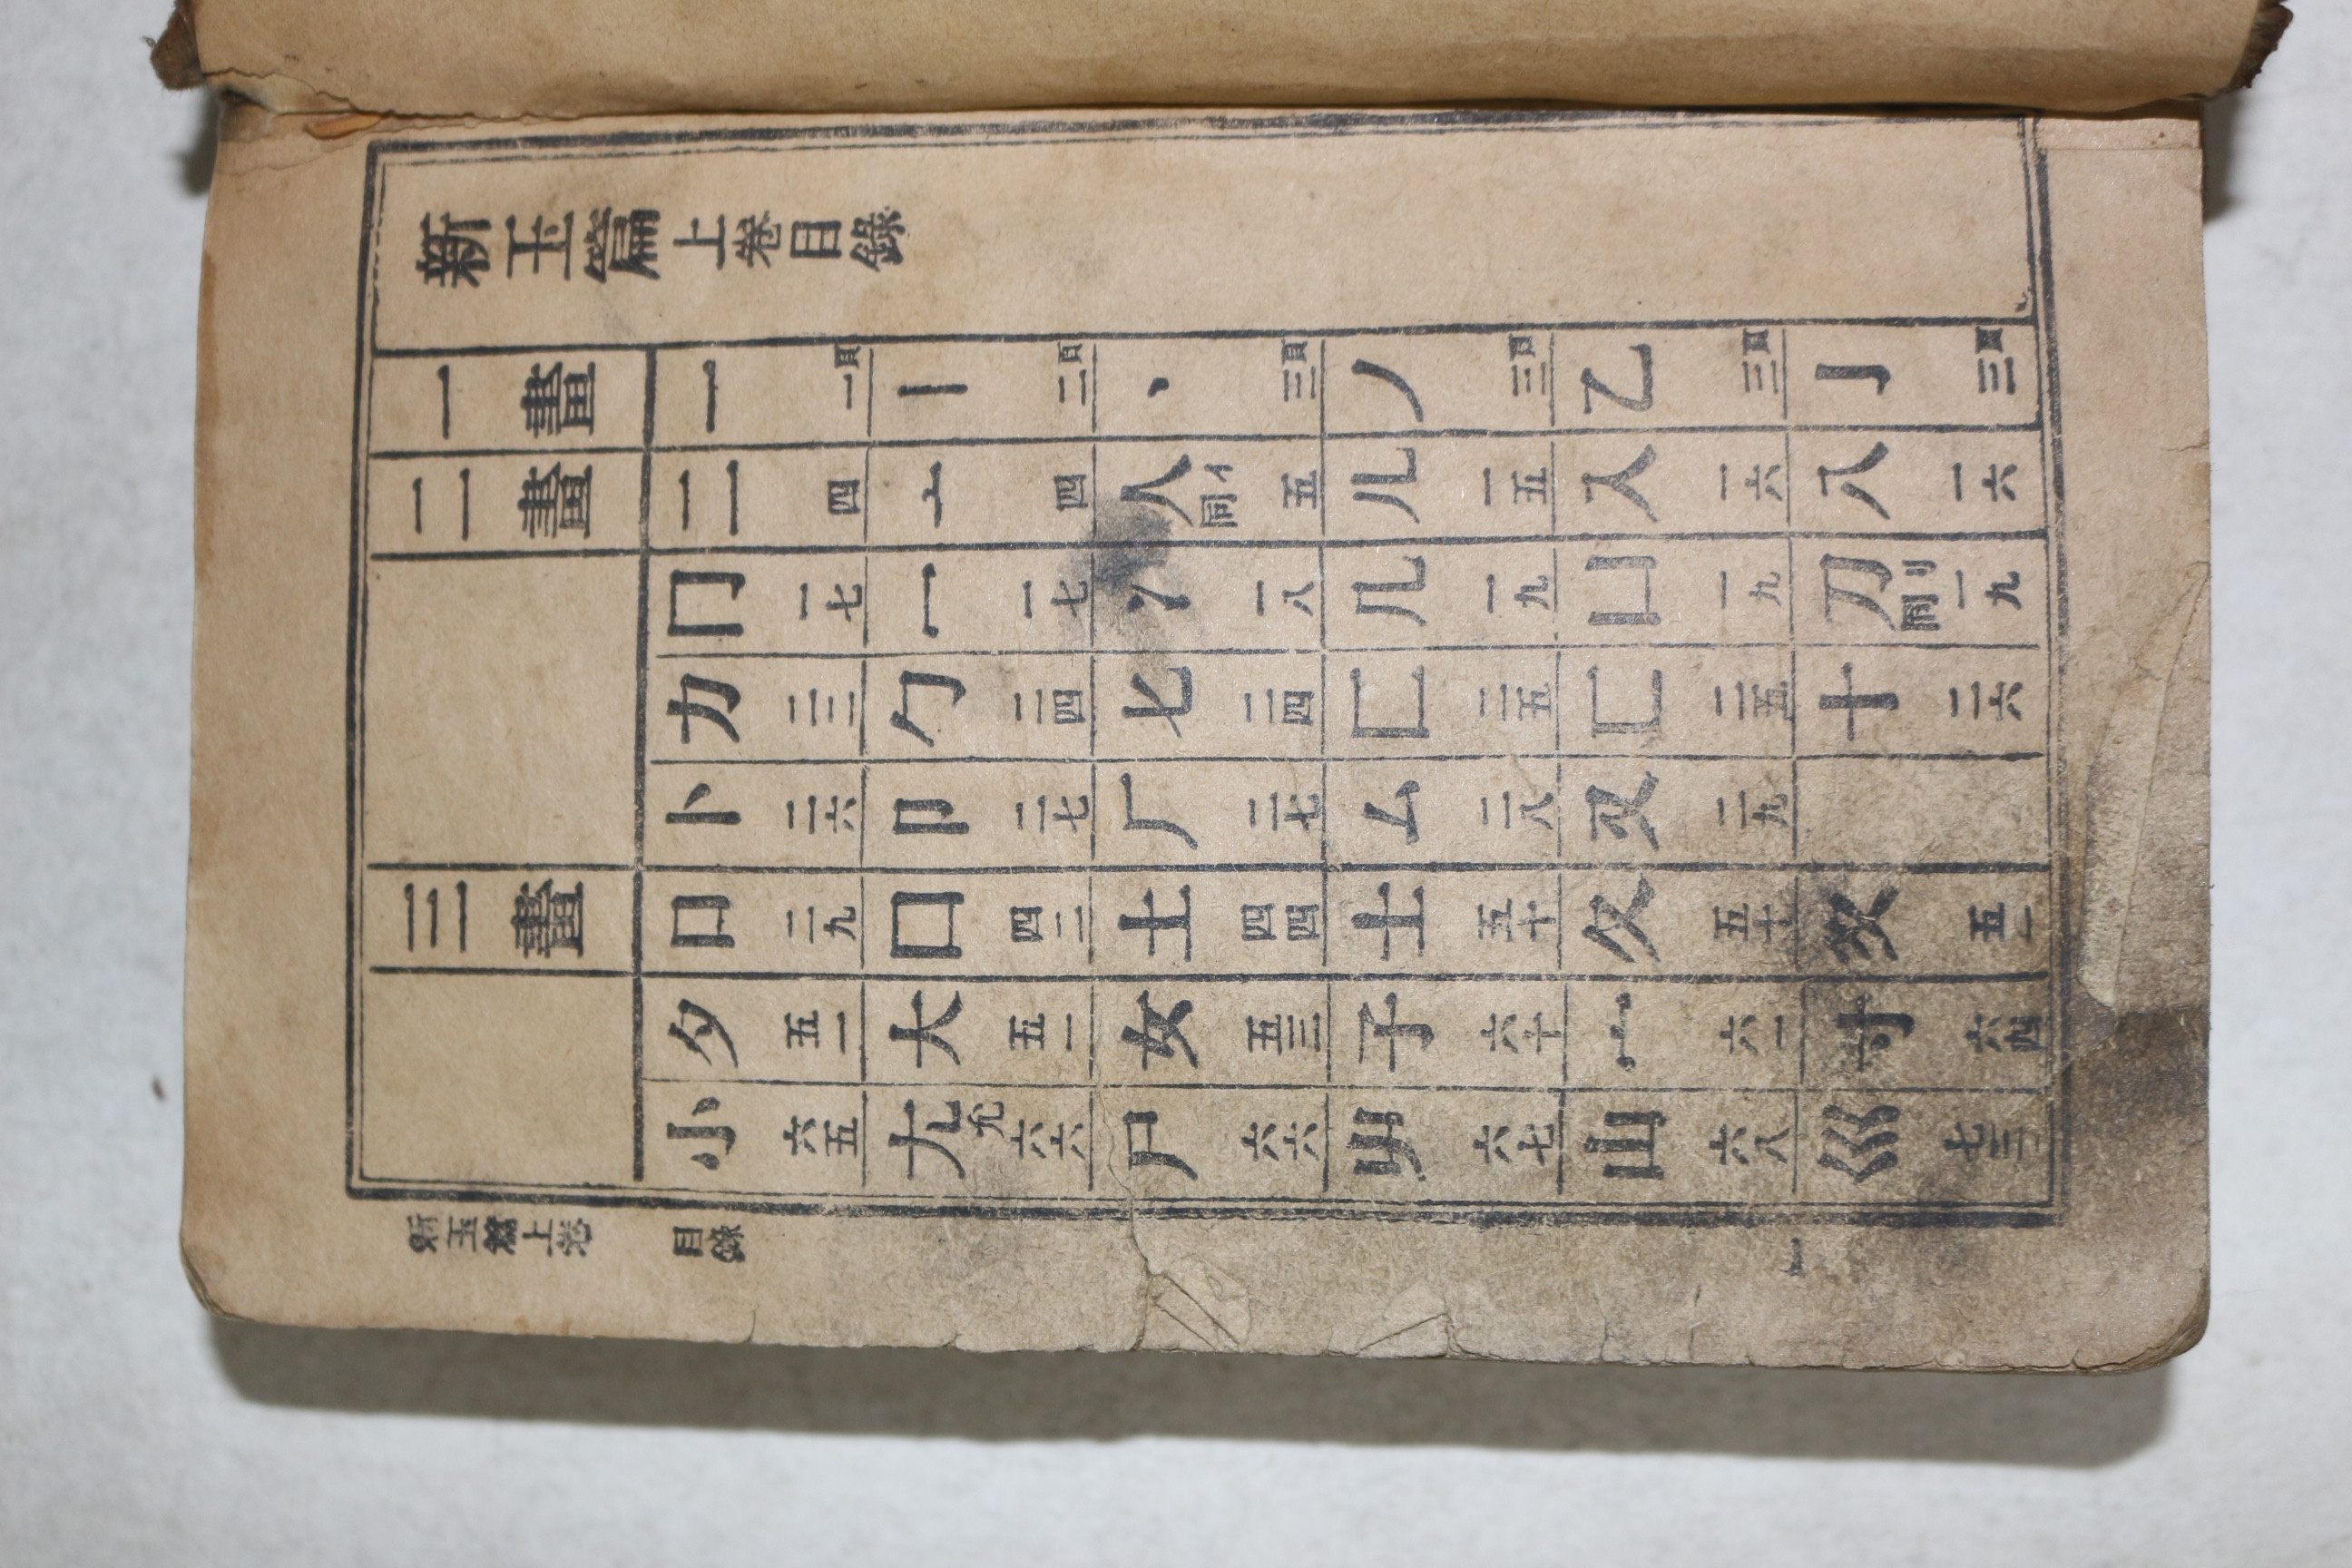 新玉篇上卷目錄
一畫 一 一頁 丨 二頁 丶 三頁 丿 三頁 乙 三頁 亅 三頁
二畫 二 四 亠 四 人 亻同 五 儿 一五 入 一六 八 一六
冂 一七 冖 一七 冫 一八 几 一九 凵 一九 刀 刂同 一九
力 勹 二四 匕 二四 匚 二五 匸 二五 十 二六
卜 二六 卩 二七 厂 二七 厶 二八 又 二九
三畫 口 二九 囗 四二 土 四四 士 五十 夂 五十 夊 五一
夕 五一 大 五一 女 五三 子 六十 宀 六一 寸 六四
小 六五 尢 尣 六六 尸 六六 屮 六七 山 六八 巛 七三
新玉篇上卷 目錄 一